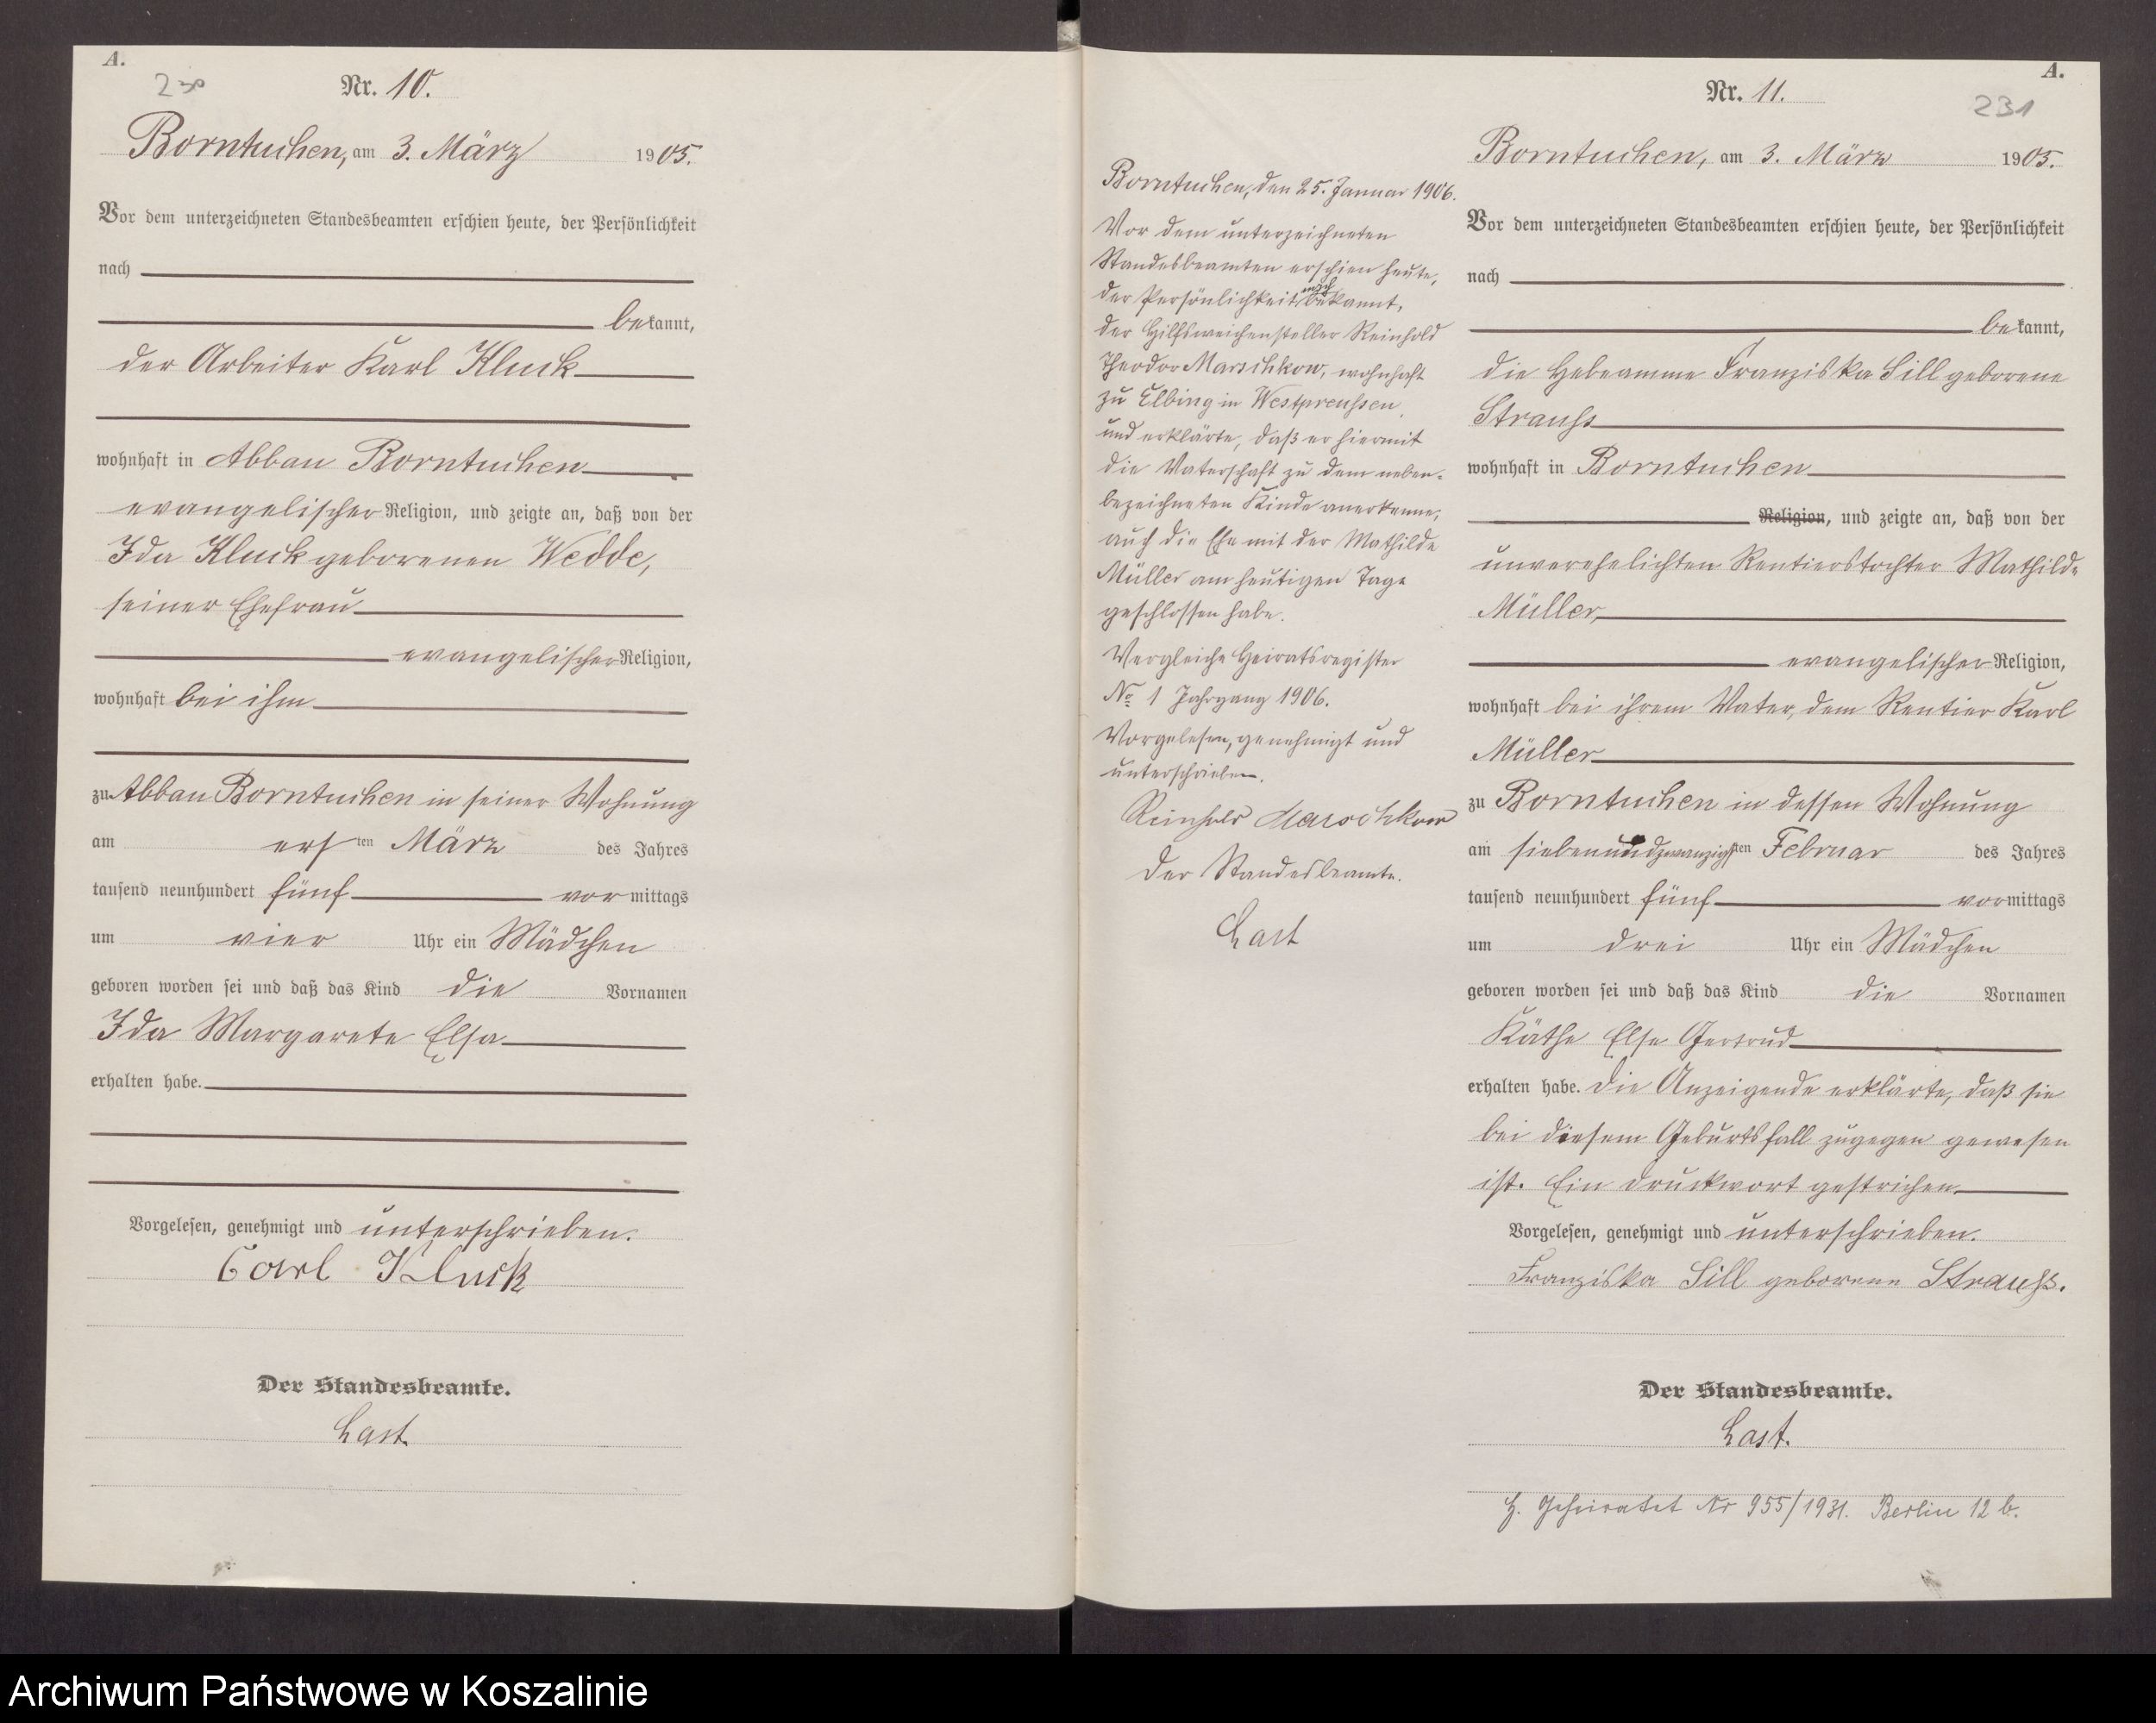 A.
230
Nr. 10.
Borntuchen, am 3. März 1905.
Vor dem unterzeichneten Standesbeamten erschien heute, der Persönlichkeit
nach
bekannt,
der Arbeiter Karl Kluck
wohnhaft in Abbau Borntuchen
evangelischer Religion, und zeigte an, daß von der
Ida Kluck geborenen Wedde,
seiner Ehefrau
evangelischer Religion,
wohnhaft bei ihm
zu Abbau Borntuchen in seiner Wohnung
am ersten März des Jahres
tausend neunhundert fünf vormittags
um vier Uhr ein Mädchen
geboren worden sei und daß das Kind die Vornamen
Ida Margarete Elsa
erhalten habe.
Vorgelesen, genehmigt und unterschrieben.
Carl Kluck
Der Standesbeamte.
Last.
Borntuchen, den 25. Januar 1906.
Vor dem unterzeichneten
Standesbeamten erschien heute,
der Persönlichkeit nach bekannt,
der Hilfsweichensteller Reinhold
Theodor Marschkow, wohnhaft
zu Elbing in Westpreußen,
und erklärte, daß er hiermit
die Vaterschaft zu dem neben-
bezeichneten Kinde anerkenne,
auch die Ehe mit der Mathilde
Müller am heutigen Tage
geschlossen habe.
Vergleiche Heiratsregister
No 1 Jahrgang 1906.
Vorgelesen, genehmigt und
unterschrieben.
Reinhold Marschkow
Der Standesbeamte.
Last
A.
231
Nr. 11.
Borntuchen, am 3. März 1905.
Vor dem unterzeichneten Standesbeamten erschien heute, der Persönlichkeit
nach
bekannt,
die Hebeamme Franziska Sill geborene
Strauß
wohnhaft in Borntuchen
Religion, und zeigte an, daß von der
unverehelichten Rentierstochter Mathilde
Müller,
evangelischer Religion,
wohnhaft bei ihrem Vater, dem Rentier Karl
Müller
zu Borntuchen in dessen Wohnung
am siebenundzwanzigsten Februar des Jahres
tausend neunhundert fünf vormittags
um drei Uhr ein Mädchen
geboren worden sei und daß das Kind die Vornamen
Käthe Else Gertrud
erhalten habe. Die Anzeigende erklärte, daß sie
bei diesem Geburtsfall zugegen gewesen
ist. Ein Druckwort gestrichen.
Vorgelesen, genehmigt und unterschrieben.
Franziska Sill geborene Strauß.
Der Standesbeamte.
Last.
H. Geheiratet Nr 955/1931. Berlin 12 b.
Archiwum Państwowe w Koszalinie